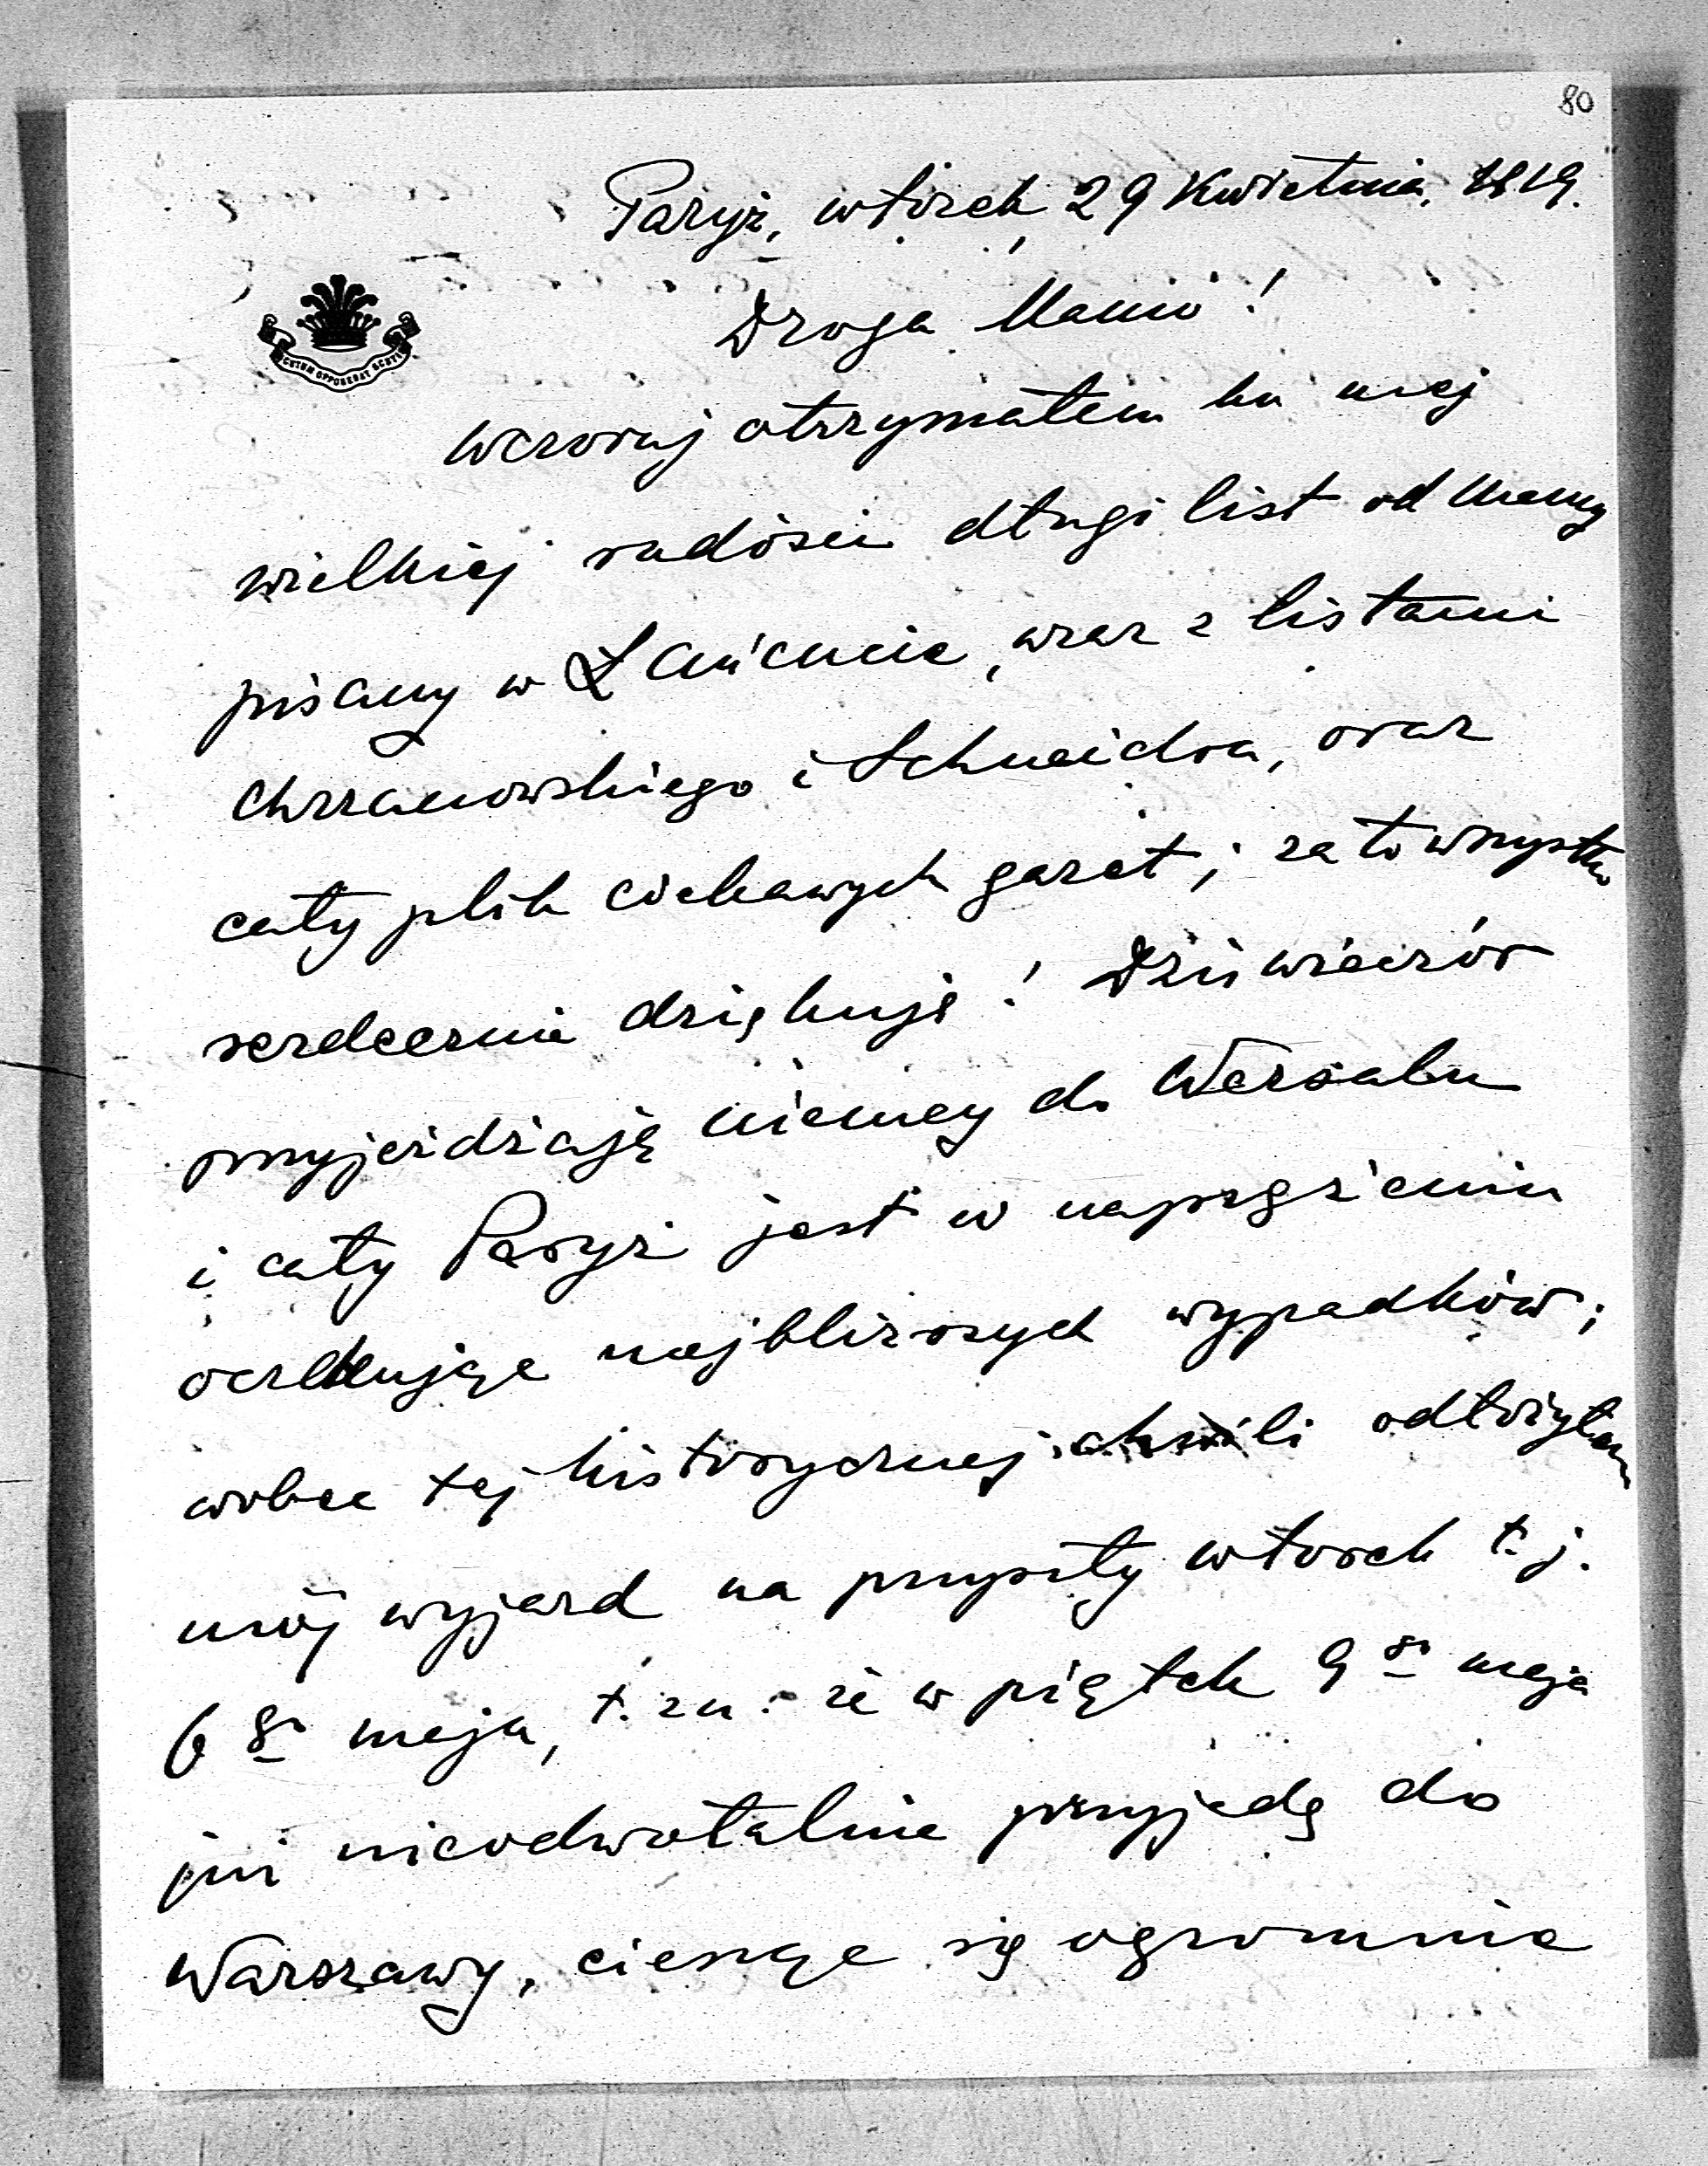 80
Paryż, wtorek 29 Kwietnia, 1919.
Droga Mamo!
SCUTUM OPPONEBAT SCUTIS
wczoraj otrzymałem ku mej
wielkiej radości długi list od Mamy
pisany w Łańcucie, wraz z listami
Chrzanowskiego i Schneidra, oraz
cały plik ciekawych gazet; za to wszystko
serdecznie dziękuję! Dziś wieczór
przyjeżdżają niemcy do Wersalu
i cały Paryż jest w naprężeniu
oczekując najbliższych wypadków;
wobec tej historycznej chwili odłożyłem
mój wyjazd na przyszły wtorek t.j.
6 go maja, t. zn. że w piątek 9 go maja
już nieodwołalnie przyjadę do
Warszawy, ciesząc się ogromnie